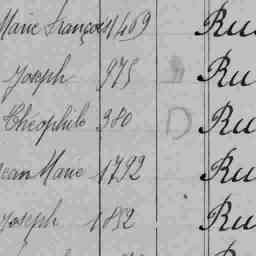 Marie François 1469 Ru
Joseph 975 Ru
Théophile 380 D Ru
Jean Marie 1792 Ru
Joseph 1852 Ru